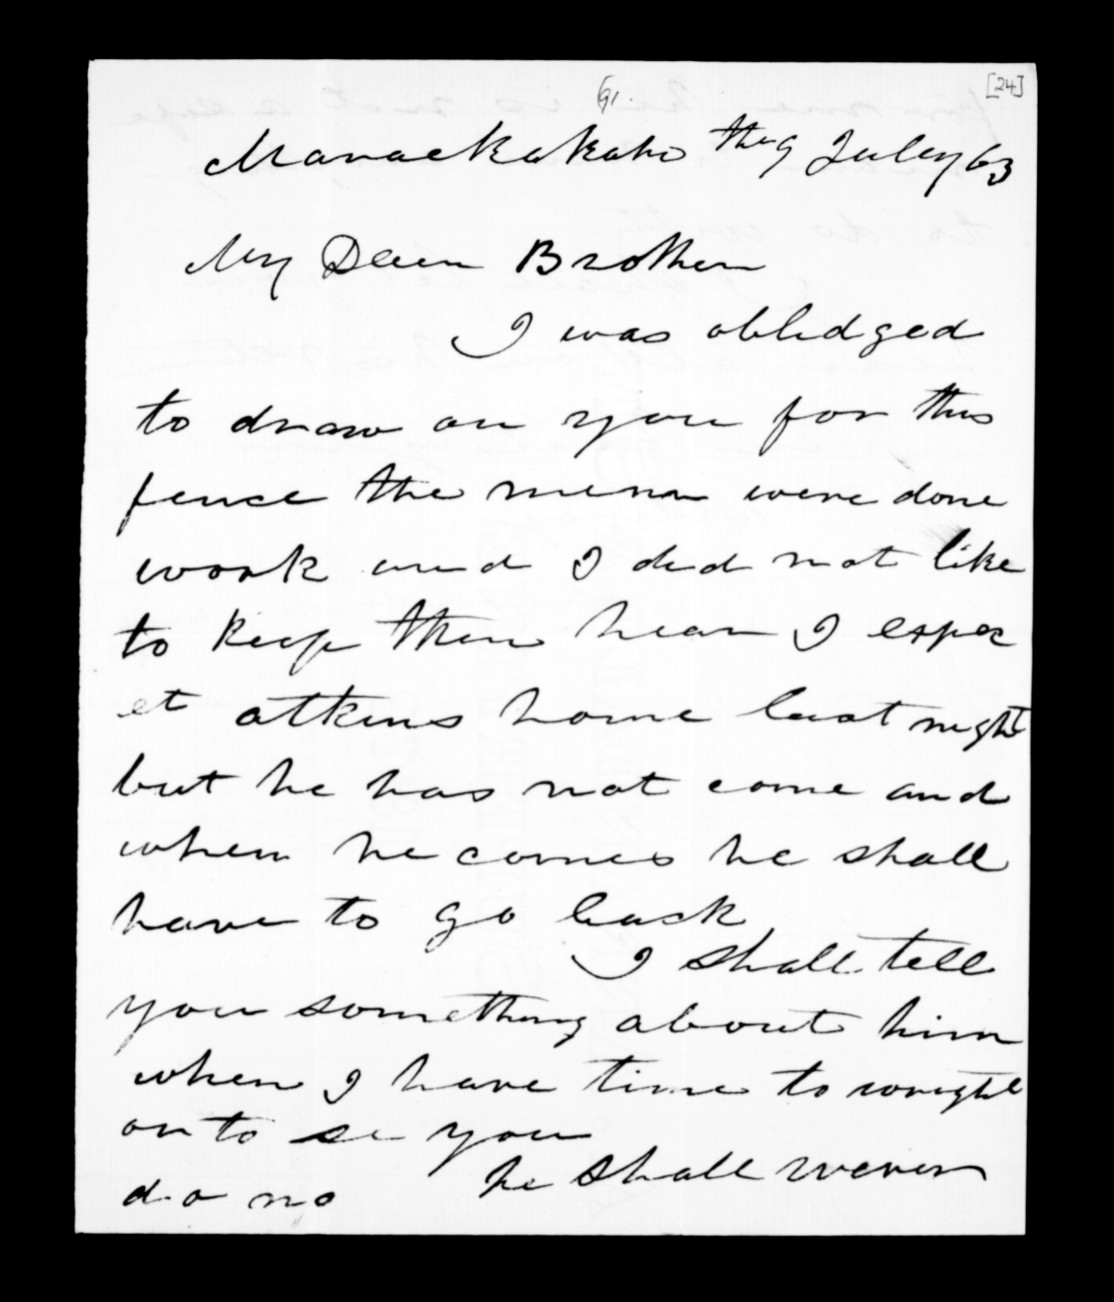 [24]
91.
Maraekakaho the 9 July 63
My Deer Brother
I was oblidged
to draw on you for this
fence the menn were done
work and I did not like
to keep them hear I expec
et atkins home last night
but he has not come and
when he comes he shall
have to go back
I shall tell
you something about him
when I have time to wright
or to se you
he shall never
do no